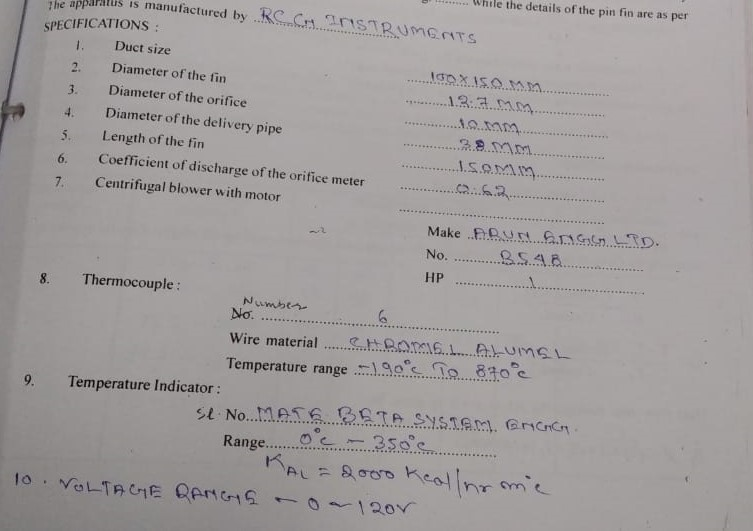 While the details of the pin fin are as per
The apparatus is manufactured by RCCH INSTRUMENTS
SPECIFICATIONS :
1. Duct size 100 X 150 MM
2. Diameter of the fin 12.7 MM
3. Diameter of the orifice 10 MM
4. Diameter of the delivery pipe 38 MM
5. Length of the fin 150 MM
6. Coefficient of discharge of the orifice meter 0.62
7. Centrifugal blower with motor
Make ARUN ENGG LTD.
No. 3548
HP 1
8. Thermocouple :
Number
No. 6
Wire material CHROMEL ALUMEL
Temperature range -190°C TO 870°C
9. Temperature Indicator :
Sl. No. MATE BETA SYSTEM ENGG.
Range 0°C - 350°C
KAL = 2000 Kcal/hr m°C
10. VOLTAGE RANGE - 0 - 120V